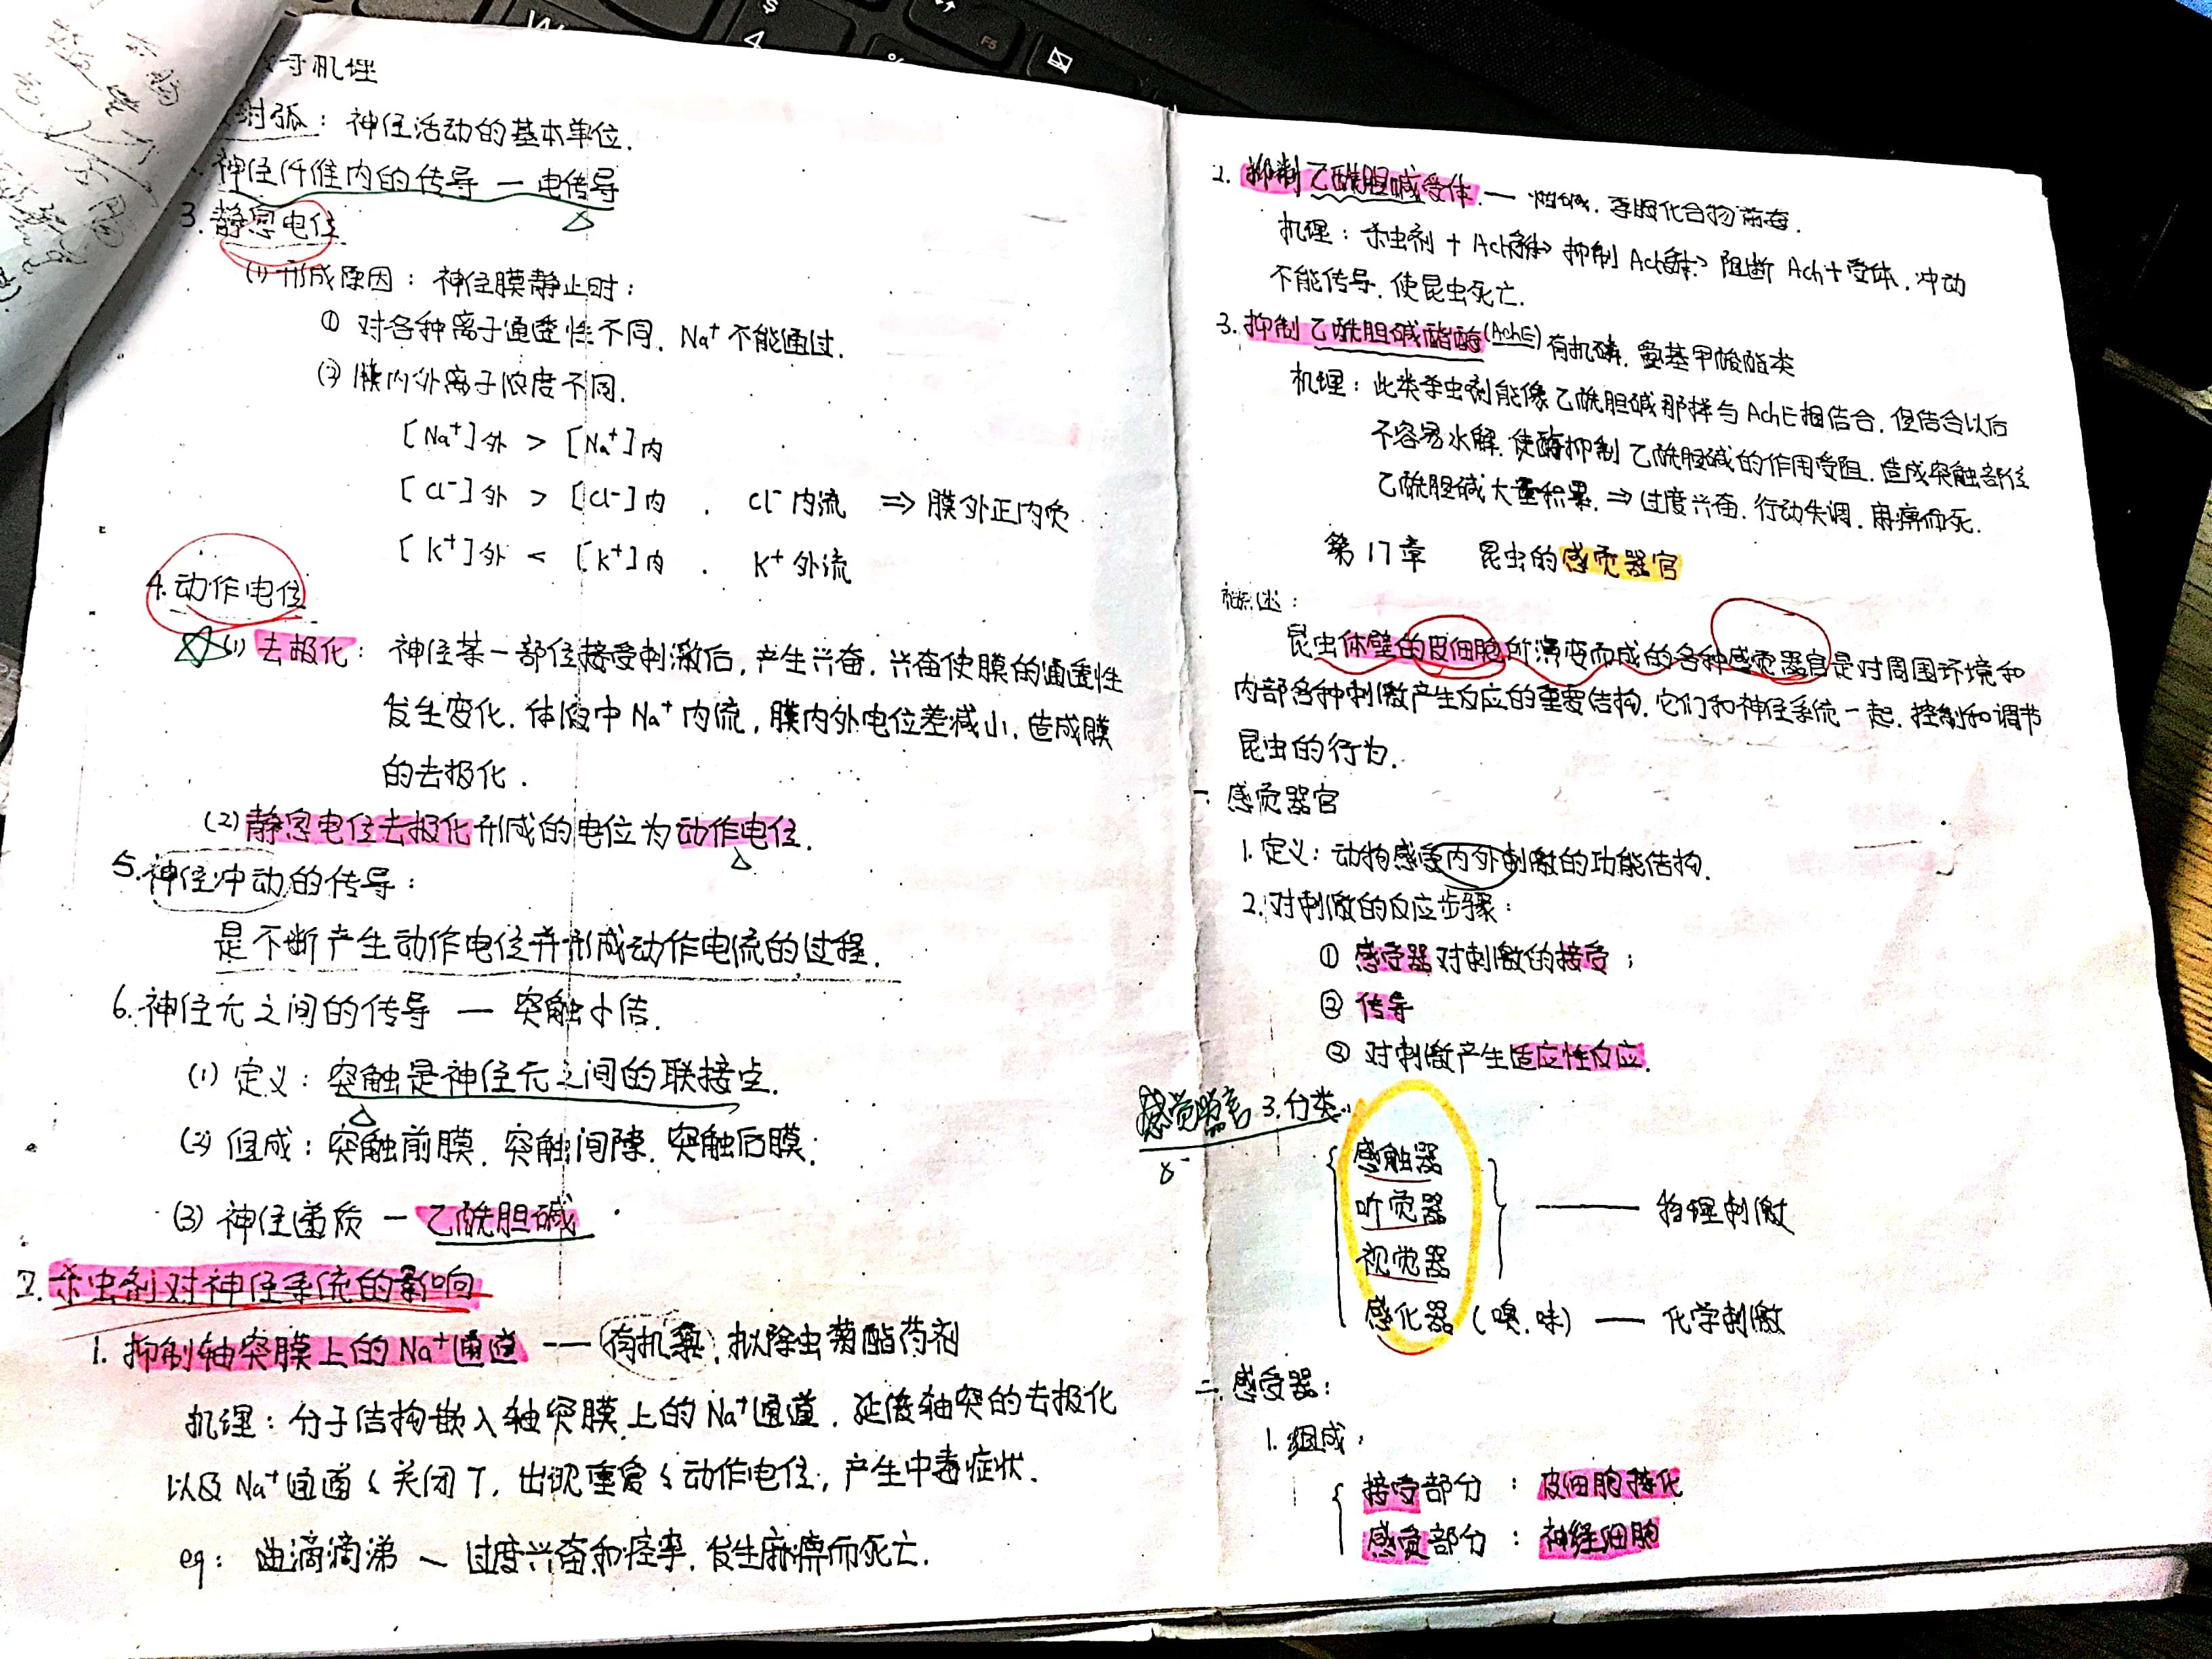 导机理
射弧：神经活动的基本单位.
神经纤维内的传导 — 电传导
3. 静息电位
(1) 形成原因：神经膜静止时：
① 对各种离子通透性不同. Na⁺ 不能通过.
(2) 膜内外离子浓度不同.
[Na⁺]外 > [Na⁺]内
[Cl⁻]外 > [Cl⁻]内 . Cl⁻ 内流 ⇒ 膜外正内负
[K⁺]外 < [K⁺]内 . K⁺ 外流
4. 动作电位
(1) 去极化：神经某一部位接受刺激后，产生兴奋. 兴奋使膜的通透性
发生变化. 体液中 Na⁺ 内流，膜内外电位差减小. 造成膜
的去极化.
(2) 静息电位去极化形成的电位为动作电位.
5. 神经冲动的传导：
是不断产生动作电位并形成动作电流的过程.
6. 神经元之间的传导 — 突触小结.
(1) 定义：突触是神经元之间的联接点.
(2) 组成：突触前膜. 突触间隙. 突触后膜；
(3) 神经递质 — 乙酰胆碱
杀虫剂对神经系统的影响
1. 抑制轴突膜上的Na⁺通道 — 有机氯. 拟除虫菊酯药剂
机理：分子结构嵌入轴突膜上的Na⁺通道. 延缓轴突的去极化
以及Na⁺通道 关闭 出现重复 动作电位，产生中毒症状.
eg：滴滴涕 — 过度兴奋和痉挛. 发生麻痹而死亡.
2. 抑制乙酰胆碱受体. — 烟碱.
机理：杀虫剂 + Ach 抑制 Ach 阻断 Ach+受体. 冲动
不能传导. 使昆虫死亡.
3. 抑制乙酰胆碱酯酶(AchE) 有机磷. 氨基甲酸酯类
机理：此类杀虫剂能像乙酰胆碱那样与AchE相结合. 但结合以后
不容易水解. 使酶抑制乙酰胆碱的作用受阻. 造成突触部位
乙酰胆碱大量积累. ⇒ 过度兴奋. 行动失调. 麻痹而死.
第17章 昆虫的感觉器官
概述：
昆虫体壁的皮细胞所演变而成的各种感觉器官是对周围环境和
内部各种刺激产生反应的重要结构. 它们和神经系统一起. 控制和调节
昆虫的行为.
一. 感觉器官
1. 定义：动物感受内外刺激的功能结构.
2. 对刺激的反应步骤：
① 感受器对刺激的接受；
② 传导
③ 对刺激产生适应性反应.
感觉器官 3. 分类：
感触器
听觉器 — 物理刺激
视觉器
感化器 (嗅. 味) — 化学刺激
二. 感受器：
1. 组成：
接受部分 ： 皮细胞特化
感觉部分 ： 神经细胞